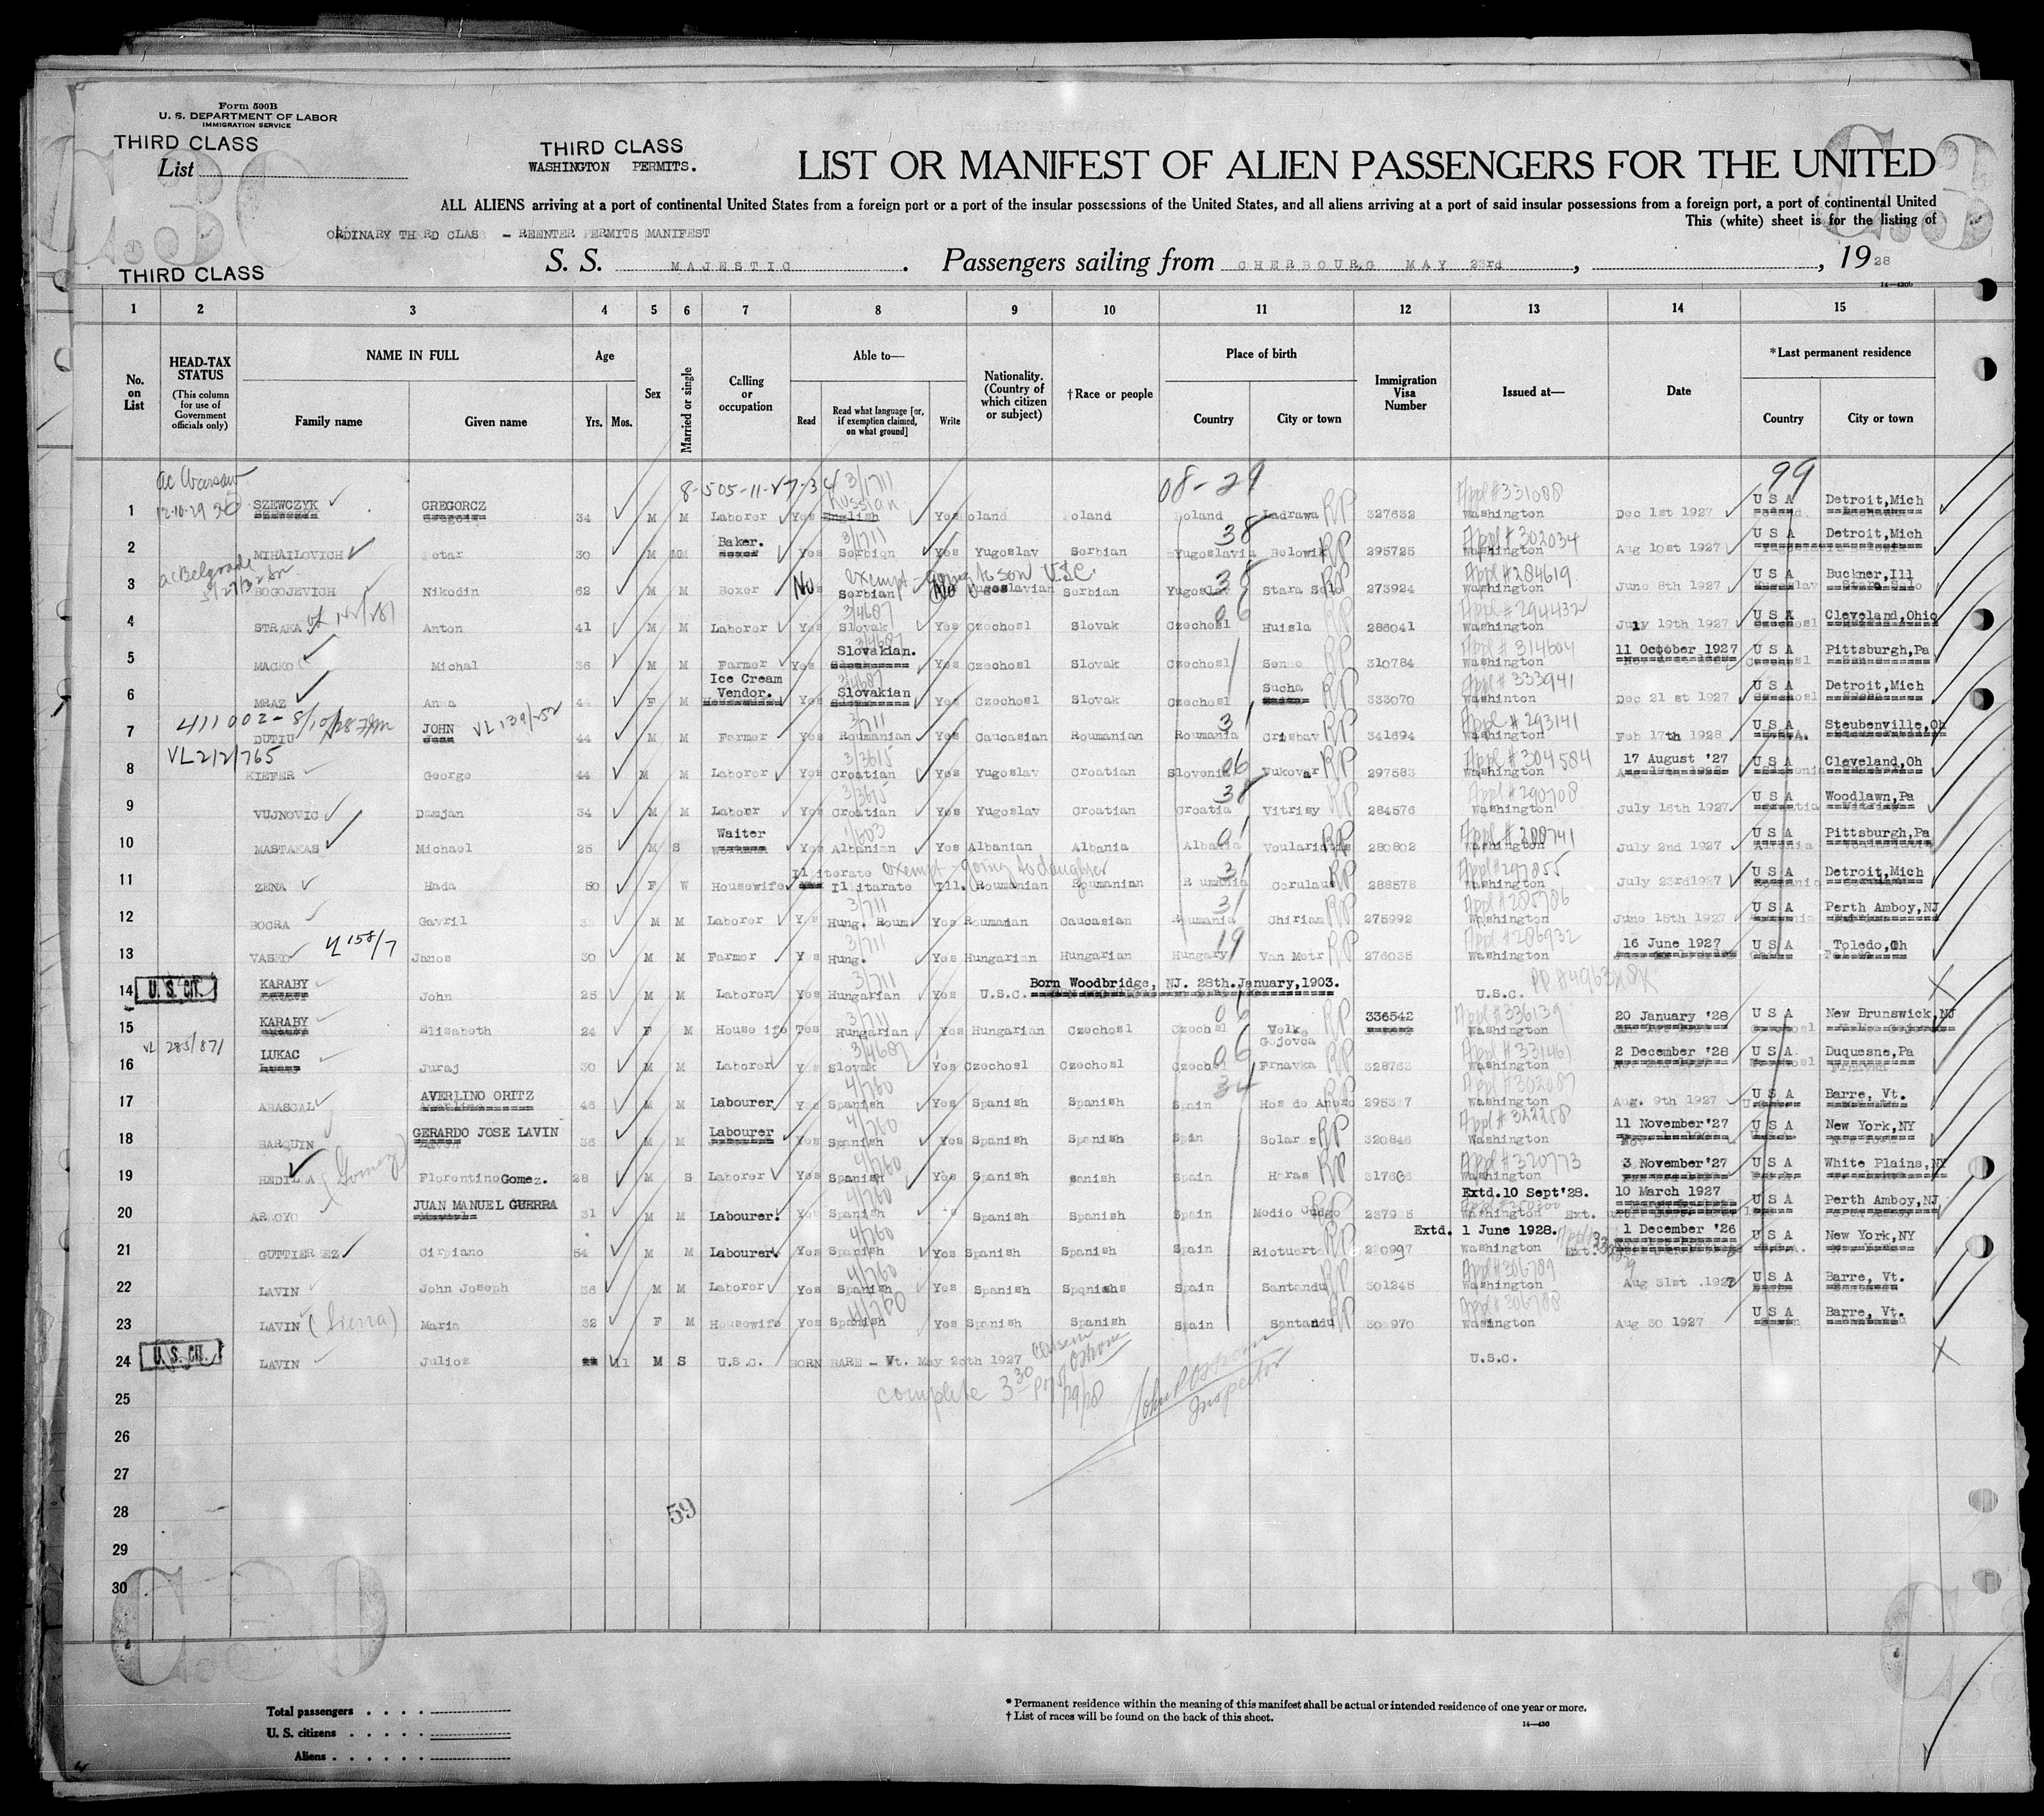 Form 500B
U. S. DEPARTMENT OF LABOR
IMMIGRATION SERVICE
THIRD CLASS
List
THIRD CLASS
WASHINGTON PERMITS.
LIST OR MANIFEST OF ALIEN PASSENGERS FOR THE UNITED
ALL ALIENS arriving at a port of continental United States from a foreign port or a port of the insular possessions of the United States, and all aliens arriving at a port of said insular possessions from a foreign port, a port of continental United
This (white) sheet is for the listing of
ORDINARY THRD CLAS - REENTER PERMITS MANIFEST
THIRD CLASS
S. S. MAJESTIC. Passengers sailing from CHERBOURG MAY 23rd, , 1928
14—430b
1 2 3 4 5 6 7 8 9 10 11 12 13 14 15
No. on List
HEAD-TAX STATUS
(This column for use of Government officials only)
NAME IN FULL
Family name Given name
Age
Yrs. Mos.
Sex
Married or single
Calling or occupation
Able to—
Read
Read what language [or, if exemption claimed, on what ground]
Write
Nationality. (Country of which citizen or subject)
† Race or people
Place of birth
Country City or town
Immigration Visa Number
Issued at—
Date
*Last permanent residence
Country City or town
ac Warsaw 8-505-11-27-34 3/1711 08-29 Appl #331088 99
1 SZEWCZYK GREGORCZ 34 M M Laborer Yes Russian English Yes Poland Poland Poland Ladrawa RP 327632 Washington Dec 1st 1927 U S A Detroit, Mich
2 MIHAILOVICH Petar 30 M M Baker. Yes 3/1711 Serbian Yes Yugoslav Serbian 38 Yugoslavia Bolowik RP 295725 Appl #302034 Washington Aug 10st 1927 U S A Detroit, Mich
ac Belgrade
3 BOGOJEVICH Nikodin 62 M M Boxer No exempt - going to son USC. Serbian No Yugoslavian Serbian 38 Yugoslav Stara Selo RP 273924 Appl #284619 Washington June 8th 1927 U S A Buckner, Ill
4 STRAKA Anton 41 M M Laborer Yes 3/4687 Slovak Yes Czechosl Slovak 06 Czechosl Huisla RP 286041 Appl #294432 Washington July 19th 1927 U S A Cleveland, Ohio
5 MACKO Michal 36 M M Farmer Yes 3/4687 Slovakian. Yes Czechosl Slovak Czechosl RP 310784 Appl #314604 Washington 11 October 1927 U S A Pittsburgh, Pa
6 MRAZ Anna 44 F M Ice Cream Vendor. Yes 3/4687 Slovakian Yes Czechosl Slovak Czechosl Sucha RP 333070 Appl #333941 Washinton Dec 21 st 1927 U S A Detroit, Mich
411002-8/10/28
7 DUTIU JOHN VL 139/252 44 M M Farmer Yes 3/711 Roumanian Yes Caucasian Roumanian 31 Roumania Crisbav RP 341694 Appl #293141 Washington Feb 17th 1928 U S A Steubenville, Oh
VL 212/765
8 KIEFER George 44 M M Laborer Yes 3/3615 Croatian Yes Yugoslav Croatian 06 Slovenia Vukovar RP 297583 Appl #304584 Washington 17 August '27 U S A Cleveland, Oh
9 VUJNOVIC Damjan 34 M M Laborr Yes 3/3615 Croatian Yes Yugoslav Croatian 38 Croatia Vitrisy RP 284576 Appl #290708 Washington July 16th 1927 U S A Woodlawn, Pa
10 MASTAKAS Michael 25 M S Waiter Yes 1/603 Albanian Yes Albanian Albania 01 Albania RP 280802 Appl #288741 Washington July 2nd 1927 U S A Pittsburgh, Pa
11 ZENA Hada 50 F W Housewife Illiterate exempt - going to daughter Illitarate Ill. Roumanian Roumanian 31 Roumania Corulau RP 288578 Appl #297855 Washington July 23rd 1927 U S A Detroit, Mich
12 BOCRA Gavril M M Laborer Yes 3/711 Hung. Roum Yes Roumaian Caucasian 31 Roumania Chiriam RP 275992 Washington June 15th 1927 U S A Perth Amboy, NJ
13 VASKO 4 158/7 Janos 30 M M Farmer Yes 3/711 Hung. Yes Hungarian Hungarian 19 Hungary Van Motr RP 276035 Appl #286932 Washington 16 June 1927 U S A Toledo, Oh
14 U. S. CIT. KARABY John 25 M M Laborer Yes 3/711 Hungarian Yes U.S.C. Born Woodbridge, NJ. 28th. January, 1903. U.S.C.
15 KARABY Elisabeth 24 F M House ife Yes 3/711 Hungarian Yes Hungarian Czechosl 06 Czechosl Velke Gojovca RP 336542 Appl #336139 Washington 20 January '28 U S A New Brunswick, NJ
VL 285/871
16 LUKAC Juraj 30 M M Laborer Yes 3/4687 Slovak Yes Czechosl Czechosl 06 Czechosl Frnavka RP 328763 Appl #331461 Washington 2 December '28 U S A Duquesne, Pa
17 ABASCAL AVERLINO ORITZ 46 M M Labourer Yes 4/760 Spanish Yes Spanish Spanish 34 Spain 295327 Appl #302087 Washington Aug. 9th 1927 U S A Barre, Vt.
18 BARQUIN GERARDO JOSE LAVIN 36 M M Labourer Yes 4/760 Spanish Yes Spanish Spanish Spain Solares RP 320846 Appl #322258 Washington 11 November '27 U S A New York, NY
19 HEDILLA (Gomez) Florentino Gomez. 28 M S Laborer Yes 4/760 Spanish Yes Spanish Spanish Spain Heras RP Appl #320773 Washington 3 November '27 U S A White Plains, NY
20 ARROYO JUAN MANUEL GUERRA 31 M M Labourer. Yes 4/760 Spanish Spanish Spanish Spain Medio RP Extd. 10 Sept '28. Washington Ext. 10 March 1927 U S A Perth Amboy, NJ
21 GUTTIERREZ Cirpiano 54 M M Labourer. Yes 4/760 Spanish Yes Spanish Spanish Spain Riotuerto RP Extd. 1 June 1928. Washington Ext. 1 December '26 U S A New York, NY
22 LAVIN John Joseph 36 M M Laborer Yes 4/760 Spanish Yes Spanish Spanish Spain Santandu RP 301245 Appl #306789 Washington Aug 31st .1927 U S A Barre, Vt.
23 LAVIN (Sierra) Maria 32 F M Housewife Yes 4/760 Spanish Yes Spanish Spanish Spain Santandu RP 30 970 Appl #306788 Washington Aug 30 1927 U S A Barre, Vt.
24 U. S. CIT. LAVIN Julios 11 M S U.S.C. BORN BARE - Vt. May 20th 1927 U.S.C.
complete 3 30 pm
John P Ostrom
Inspector
25
26
27
28
59
29
30
Total passengers
U. S. citizens
Aliens
* Permanent residence within the meaning of this manifest shall be actual or intended residence of one year or more.
† List of races will be found on the back of this sheet.
14—430